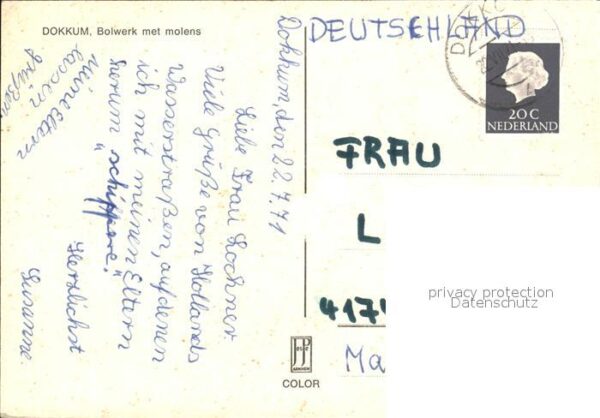 DOKKUM, Bolwerk met molens
Dokkum, den 22.7.71
Liebe Frau Lochner
Viele Grüße von Hollands
Wasserstraßen, auf denen
ich mit meinen Eltern
herum "schippere".
Herzlichst
Susanne
meine Eltern
lassen
grüßen
DEUTSCHLAND
20 C
NEDERLAND
FRAU
L
4174
Ma
privacy protection
Datenschutz
COLOR